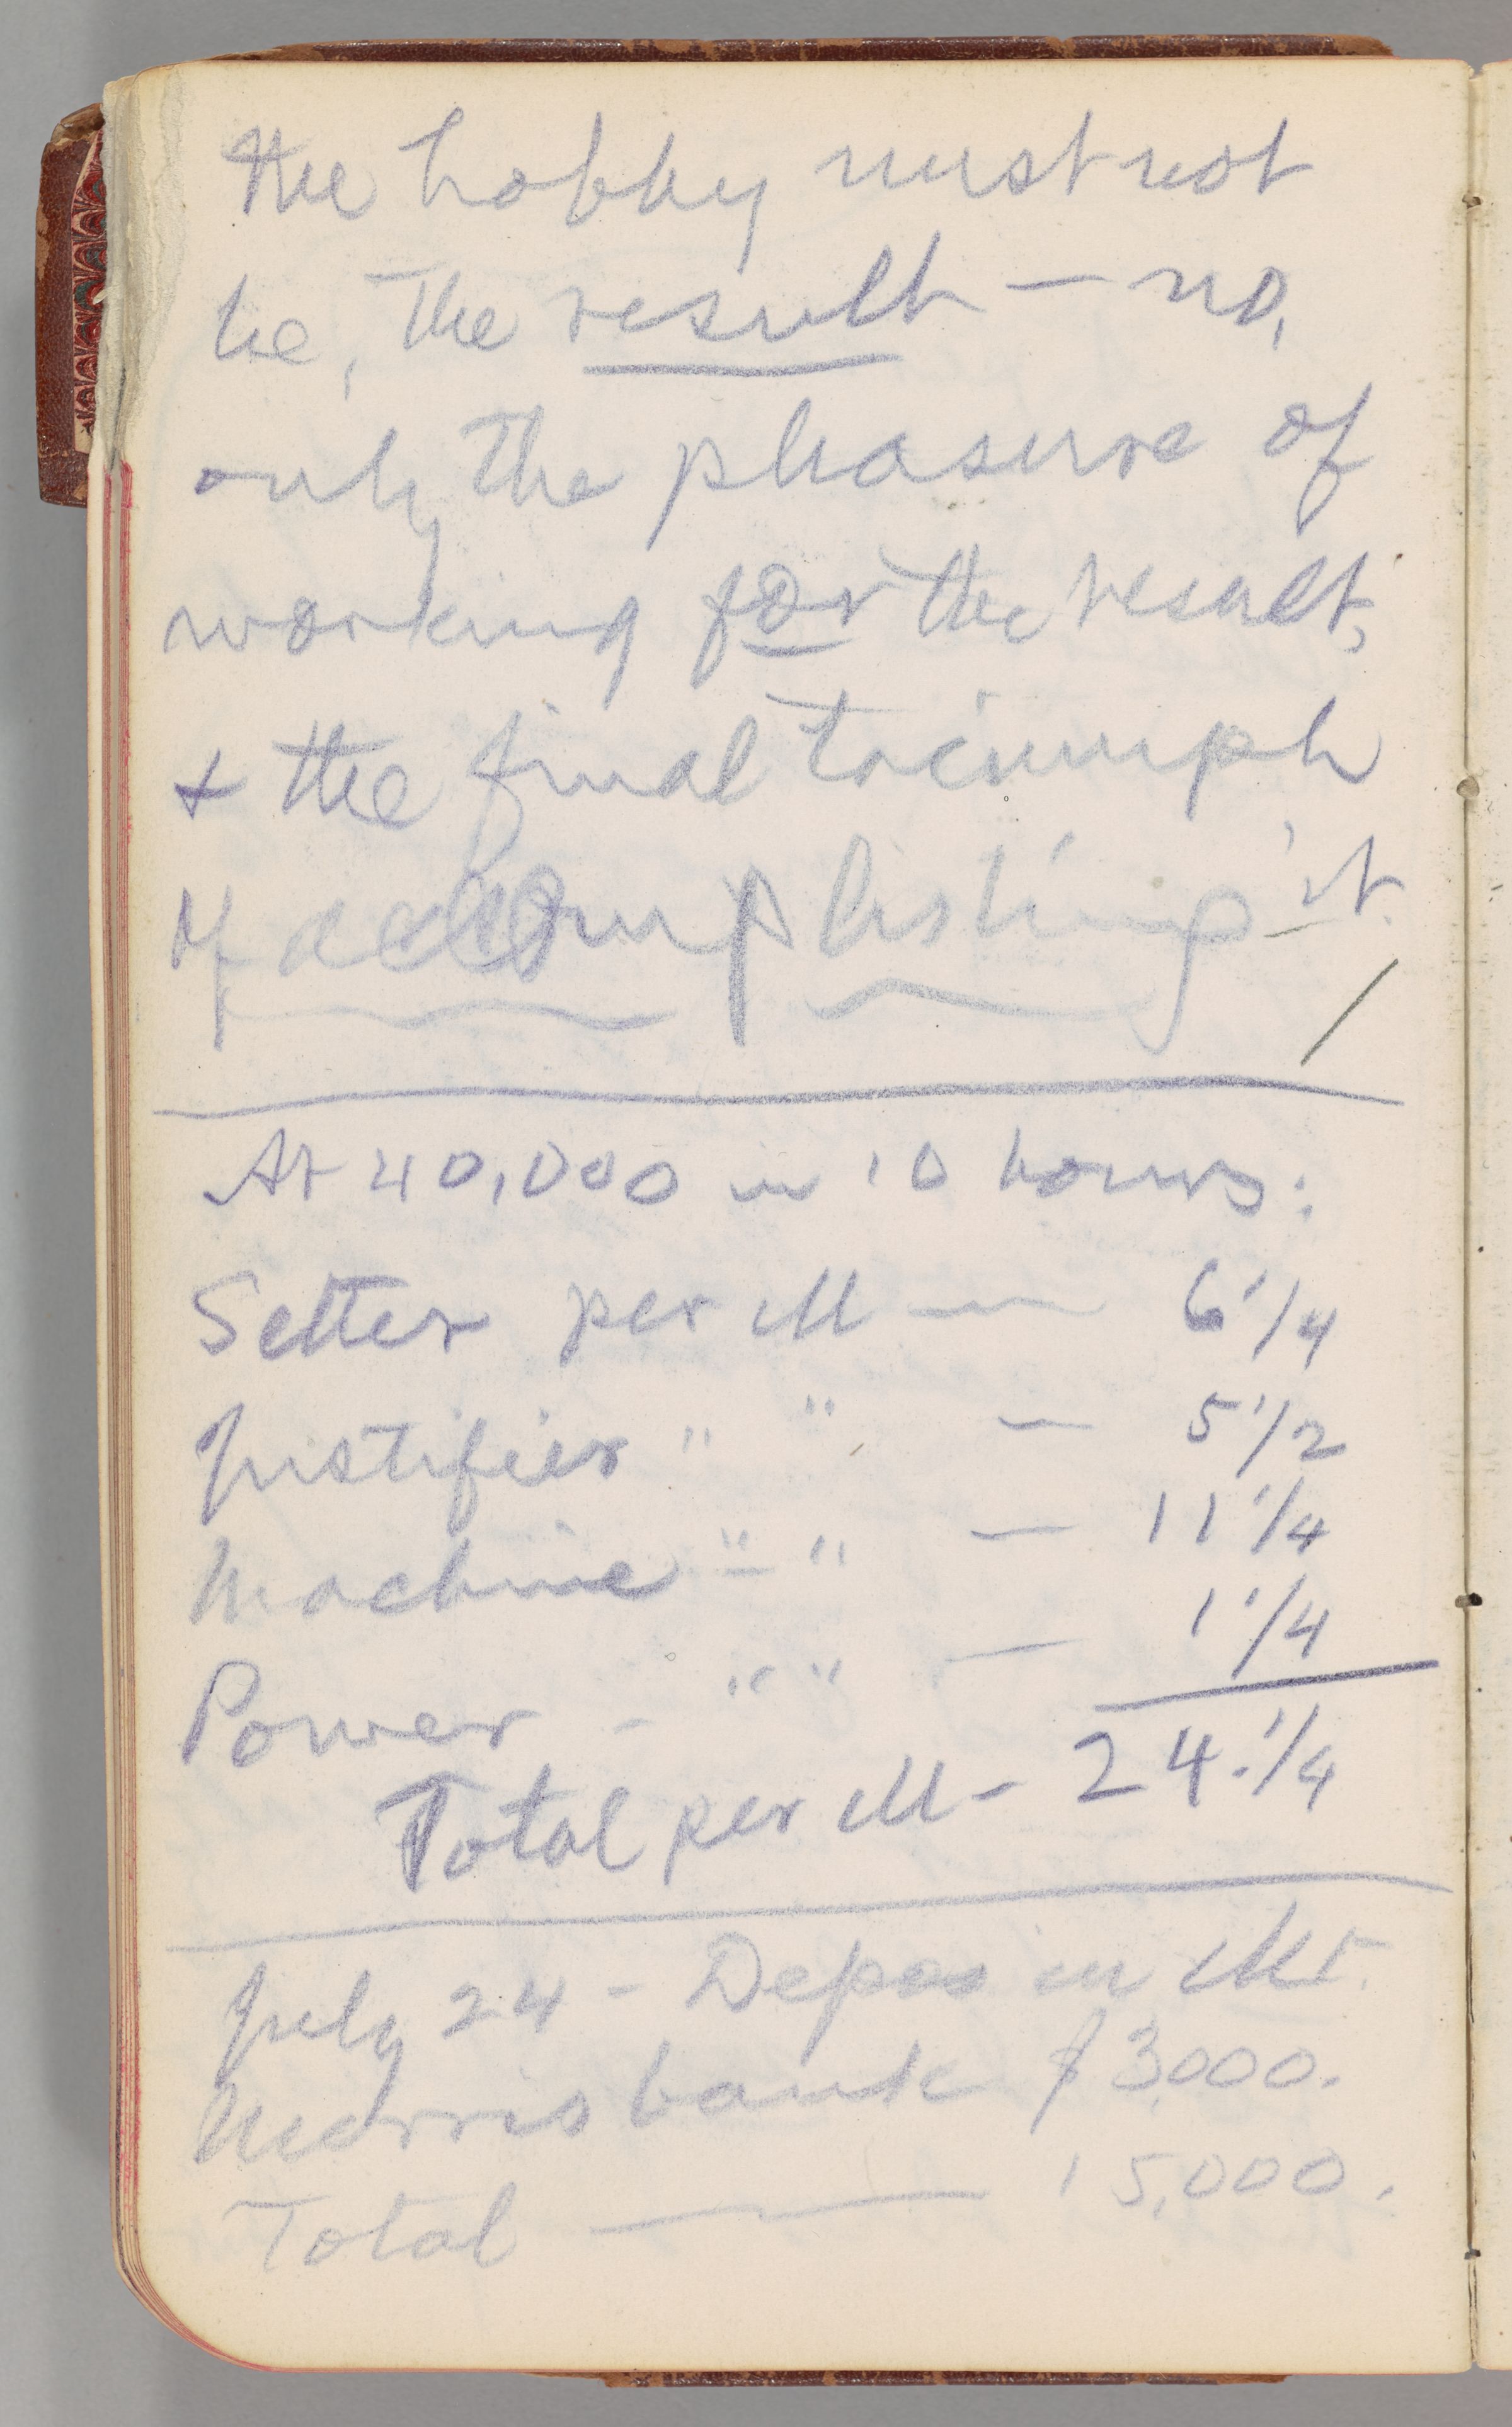 the hobby must not
be, the result — no,
only the pleasure of
working for the result,
& the final triumph
of accomplishing it.
At 40,000 in 10 hours:
Setter per M — 6 1/4
Justifier " " — 5 1/2
Machine " " — 11 1/4
Power - " " — 1 1/4
Total per M - 24.1/4
July 24 - Depos in Mt.
Morris bank $3,000.
Total — 15,000.